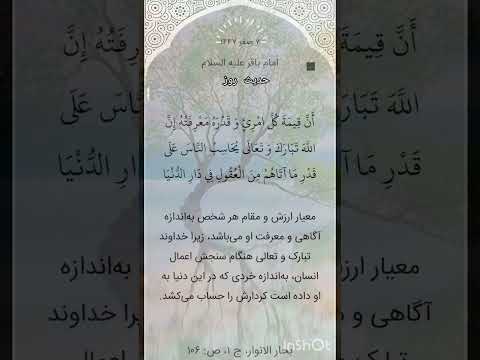 ۷ صفر ۱۴۴۷
أَنَّ قِيمَةَ كُلِّ امْرِئٍ وَ قَدْرَهُ مَعْرِفَتُهُ إِنَّ
امام باقر علیه السلام
حدیث روز
أَنَّ قِيمَةَ كُلِّ امْرِئٍ وَ قَدْرَهُ مَعْرِفَتُهُ إِنَّ
اللَّهَ تَبَارَكَ وَ تَعَالَى يُحَاسِبُ النَّاسَ عَلَى
قَدْرِ مَا آتَاهُمْ مِنَ الْعُقُولِ فِي دَارِ الدُّنْيَا
معیار ارزش و مقام هر شخص به‌اندازه
آگاهی و معرفت او می‌باشد، زیرا خداوند
تبارک و تعالی هنگام سنجش اعمال
انسان، به‌اندازه خردی که در این دنیا به
او داده است کردارش را حساب می‌کشد.
بحار الانوار، ج ۱، ص: ۱۰۶
InShOt